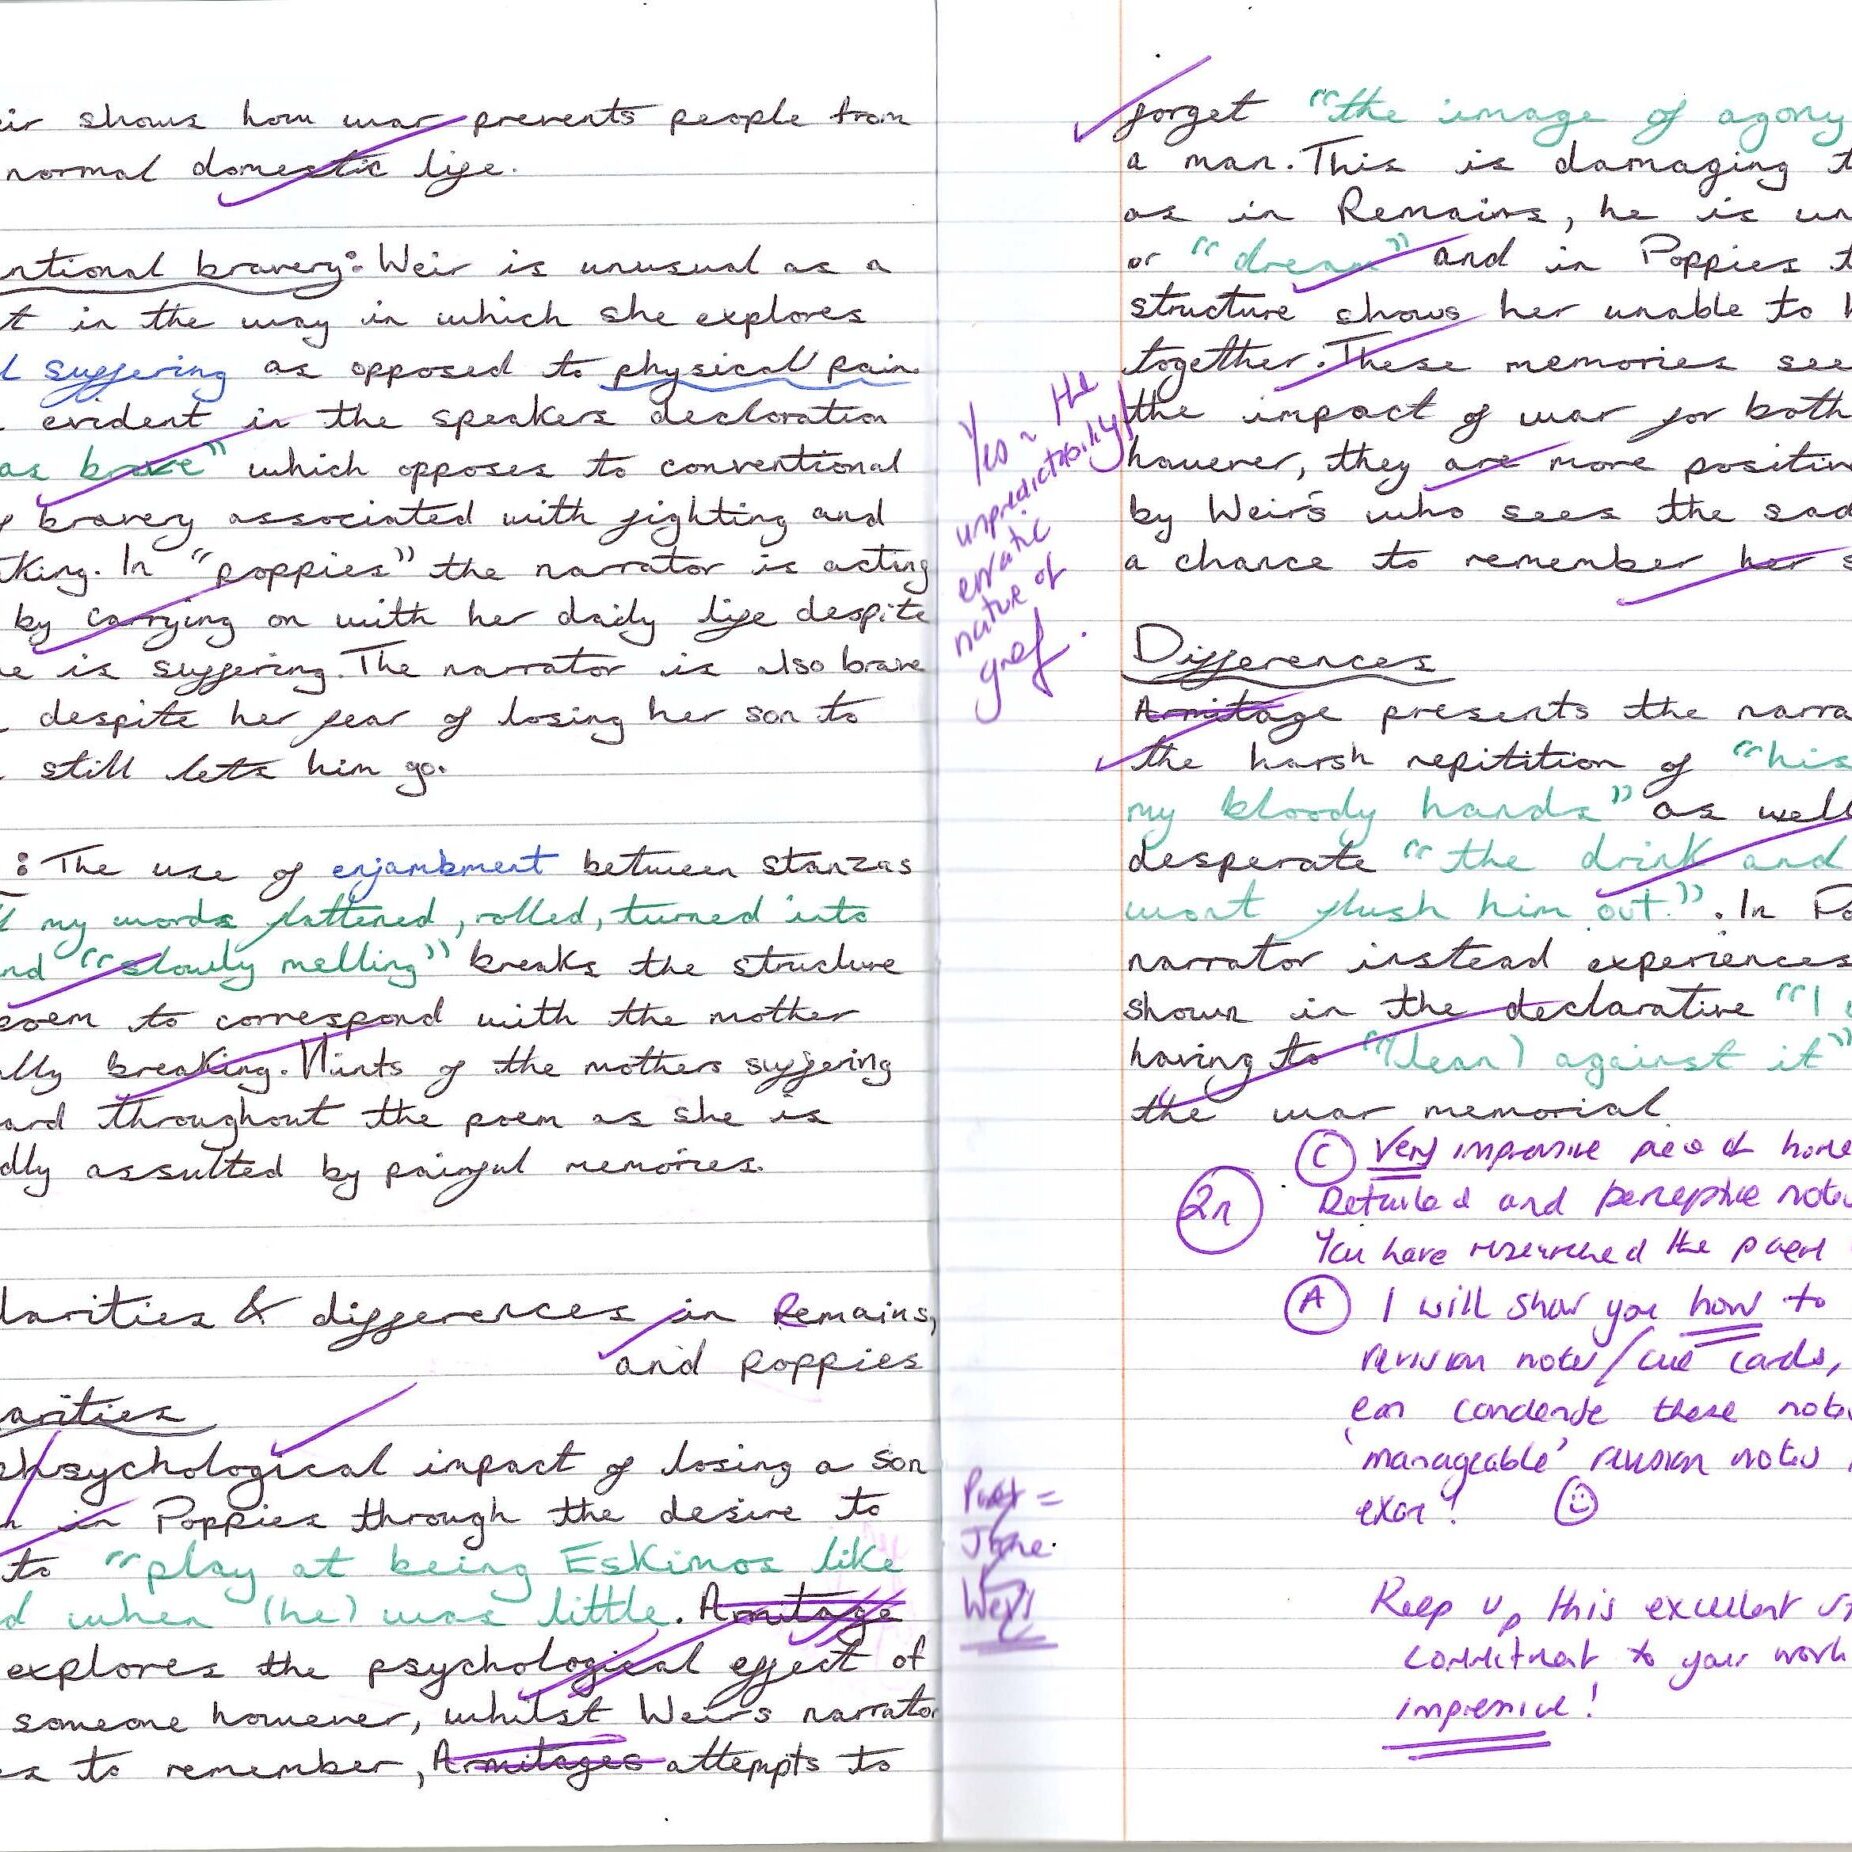 eir shows how war prevents people from
normal domestic life.
ntional bravery: Weir is unusual as a
t in the way in which she explores
l suffering as opposed to physical pain.
evident in the speakers declaration
as brave" which opposes to conventional
y bravery associated with fighting and
king. In "poppies" the narrator is acting
by carrying on with her daily life despite
e is suffering. The narrator is also brave
despite her fear of losing her son to
still lets him go.
: The use of enjambment between stanzas
my words flattened, rolled, turned into
nd "slowly melling" breaks the structure
poem to correspond with the mother
lly breaking. Hints of the mothers suffering
ard throughout the poem as she is
dly assulted by painful memories.
larities & differences in Remains,
and poppies
arities
psychological impact of losing a son
n in Poppies through the desire to
to "play at being Eskimos like
d when (he) was little. Armitage
explores the psychological effect of
someone however, whilst Weirs narrator
es to remember, Armitages attempts to
Yes ~ the
unpredictability/
erratic
nature of
grief.
Poet =
Jane
Weir
forget "the image of agony
a man. This is damaging t
as in Remains, he is un
or "dream" and in Poppies t
structure shows her unable to h
together. These memories see
the impact of war for both
however, they are more positiv
by Weirs who sees the sad
a chance to remember her s
Differences
Armitage presents the narra
the harsh repitition of "his
my bloody hands" as well
desperate "the drink and
wont flush him out.". In Po
narrator instead experiences
shown in the declarative "I
having to "(lean) against it"
the war memorial
C Very impressive piece of home
2n Detailed and perceptive notes
You have researched the poem
A I will show you how to
revision notes/cue cards,
can condense these notes
'manageable' revision notes
exam!
Keep up this excellent
commitment to your work
impressive!